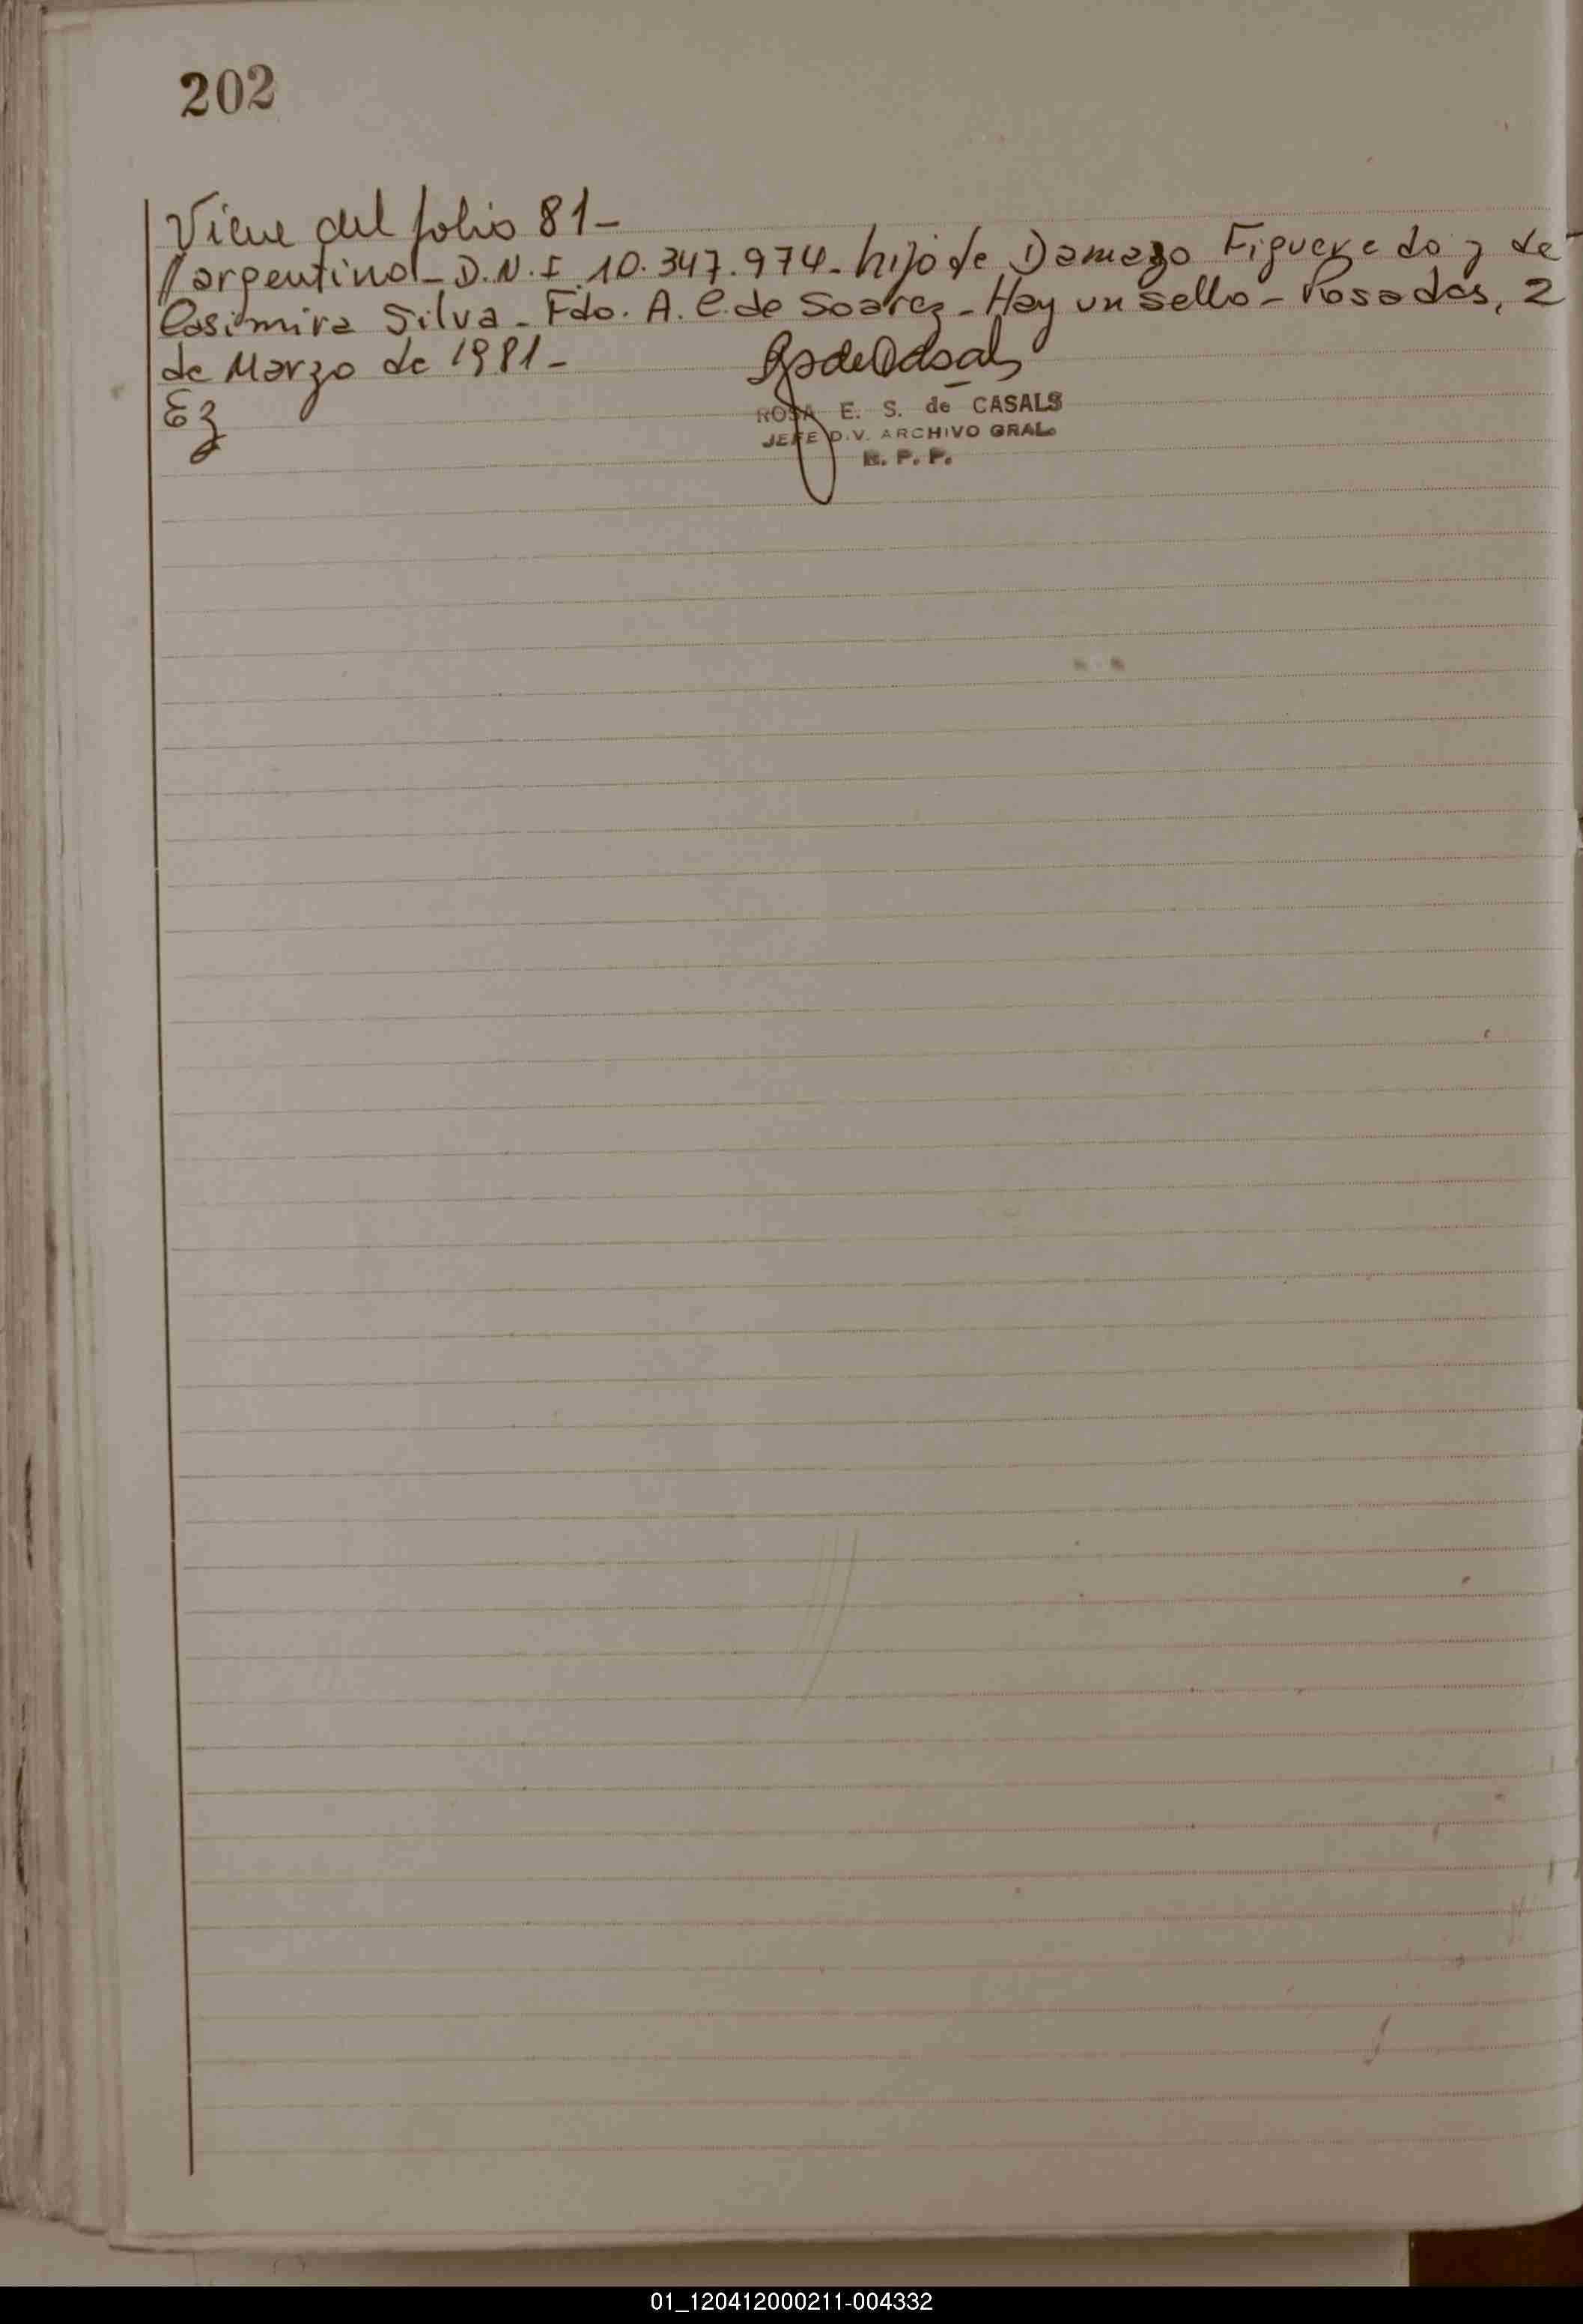 202
Viene del folio 81-
// argentino - D.N.I. 10.347.974 - hijo de Damazo Figueredo y de
Casimira Silva - Fdo. A. C. de Soarez - Hay un sello - Posadas, 2
de Marzo de 1981 -
Ez
ROSA E. S. de CASALS
JEFE DIV. ARCHIVO GRAL.
R. P. P.
01_120412000211-004332